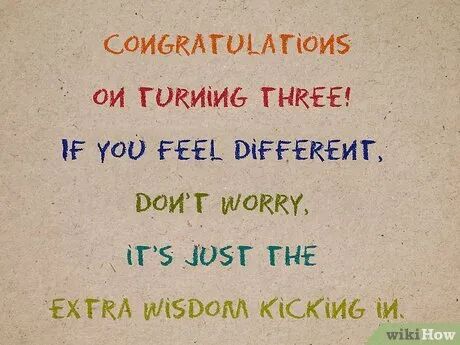 CONGRATULATIONS
ON TURNING THREE!
IF YOU FEEL DIFFERENT,
DON'T WORRY,
IT'S JUST THE
EXTRA WISDOM KICKING IN.
wikiHow